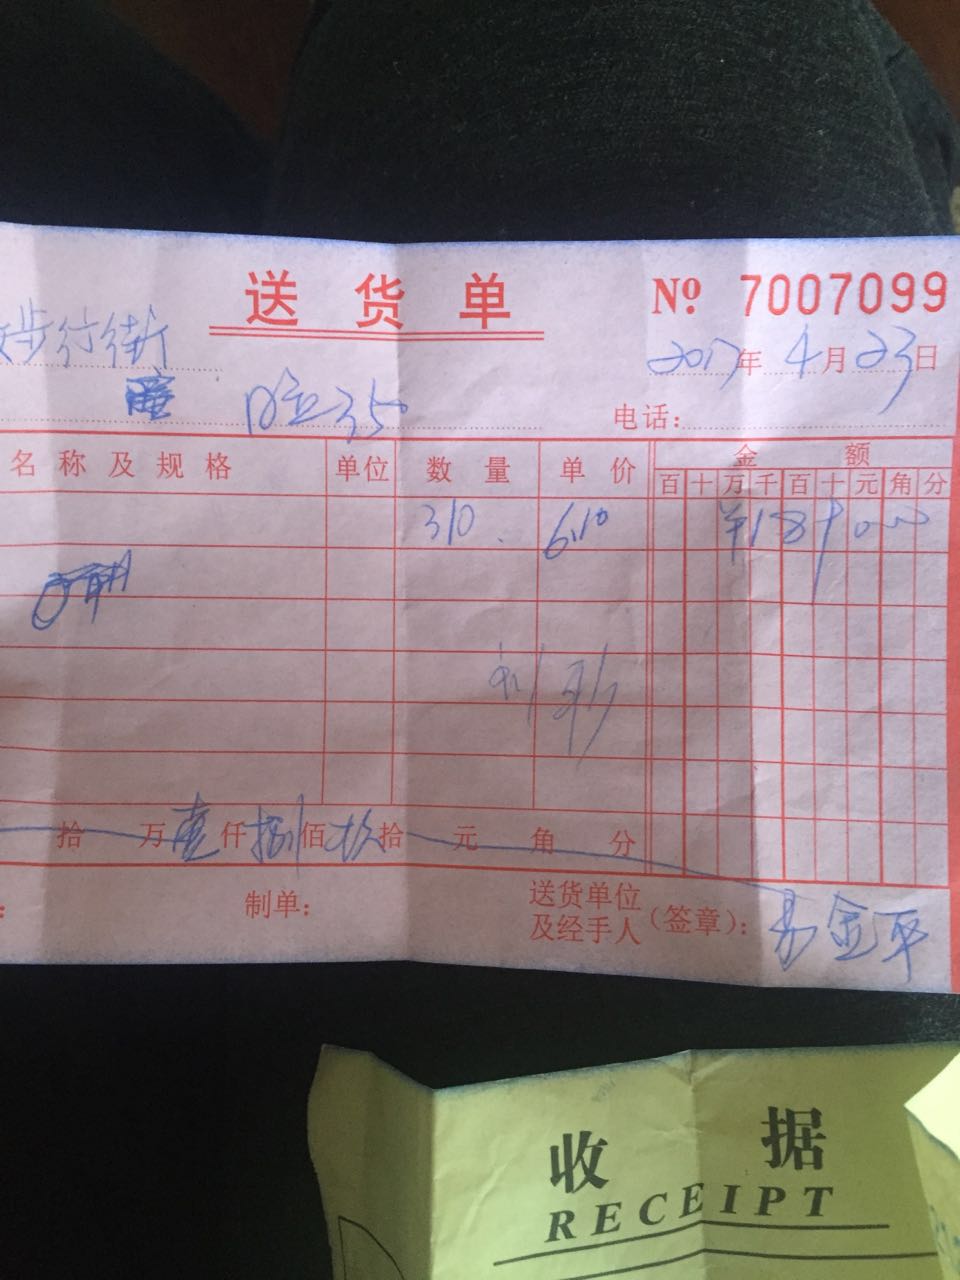 送货单 № 7007099
步行街 2017年4月23日
电话:
名称及规格 单位 数量 单价 金额
百十万千百十元角分
310 6.10 ¥189000
拾 万壹仟捌佰玖拾 元 角 分
制单: 送货单位及经手人(签章): 易金平
收据
RECEIPT